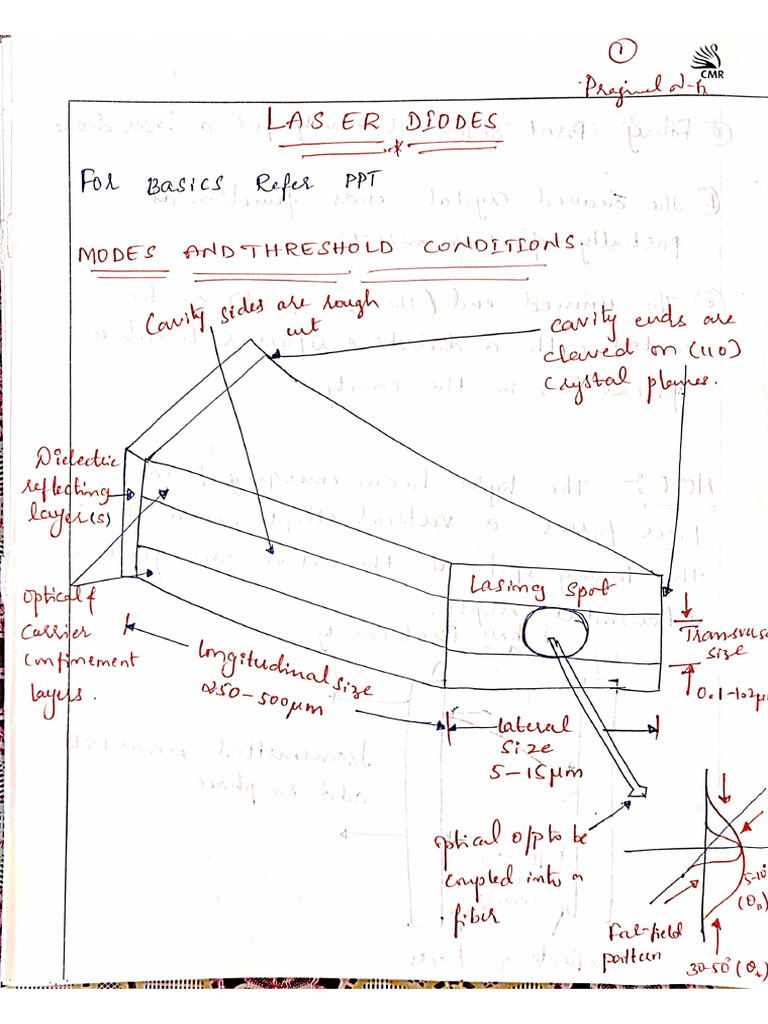 1
CMR
LASER DIODES
For BASICS Refer PPT
MODES AND THRESHOLD CONDITIONS
Cavity sides are rough
cut
cavity ends are
cleaved on (110)
Crystal planes.
Dielectric
reflecting
layer(s)
Lasing spot
Optical &
Carrier
Confinement
layers.
Longitudinal size
250-500μm
Transverse
size
0.1-1.2μ
Lateral
size
5-15μm
optical o/p to be
coupled into a
fiber
5-10°
(θ11)
Far-field
pattern
30-50° (θ⊥)